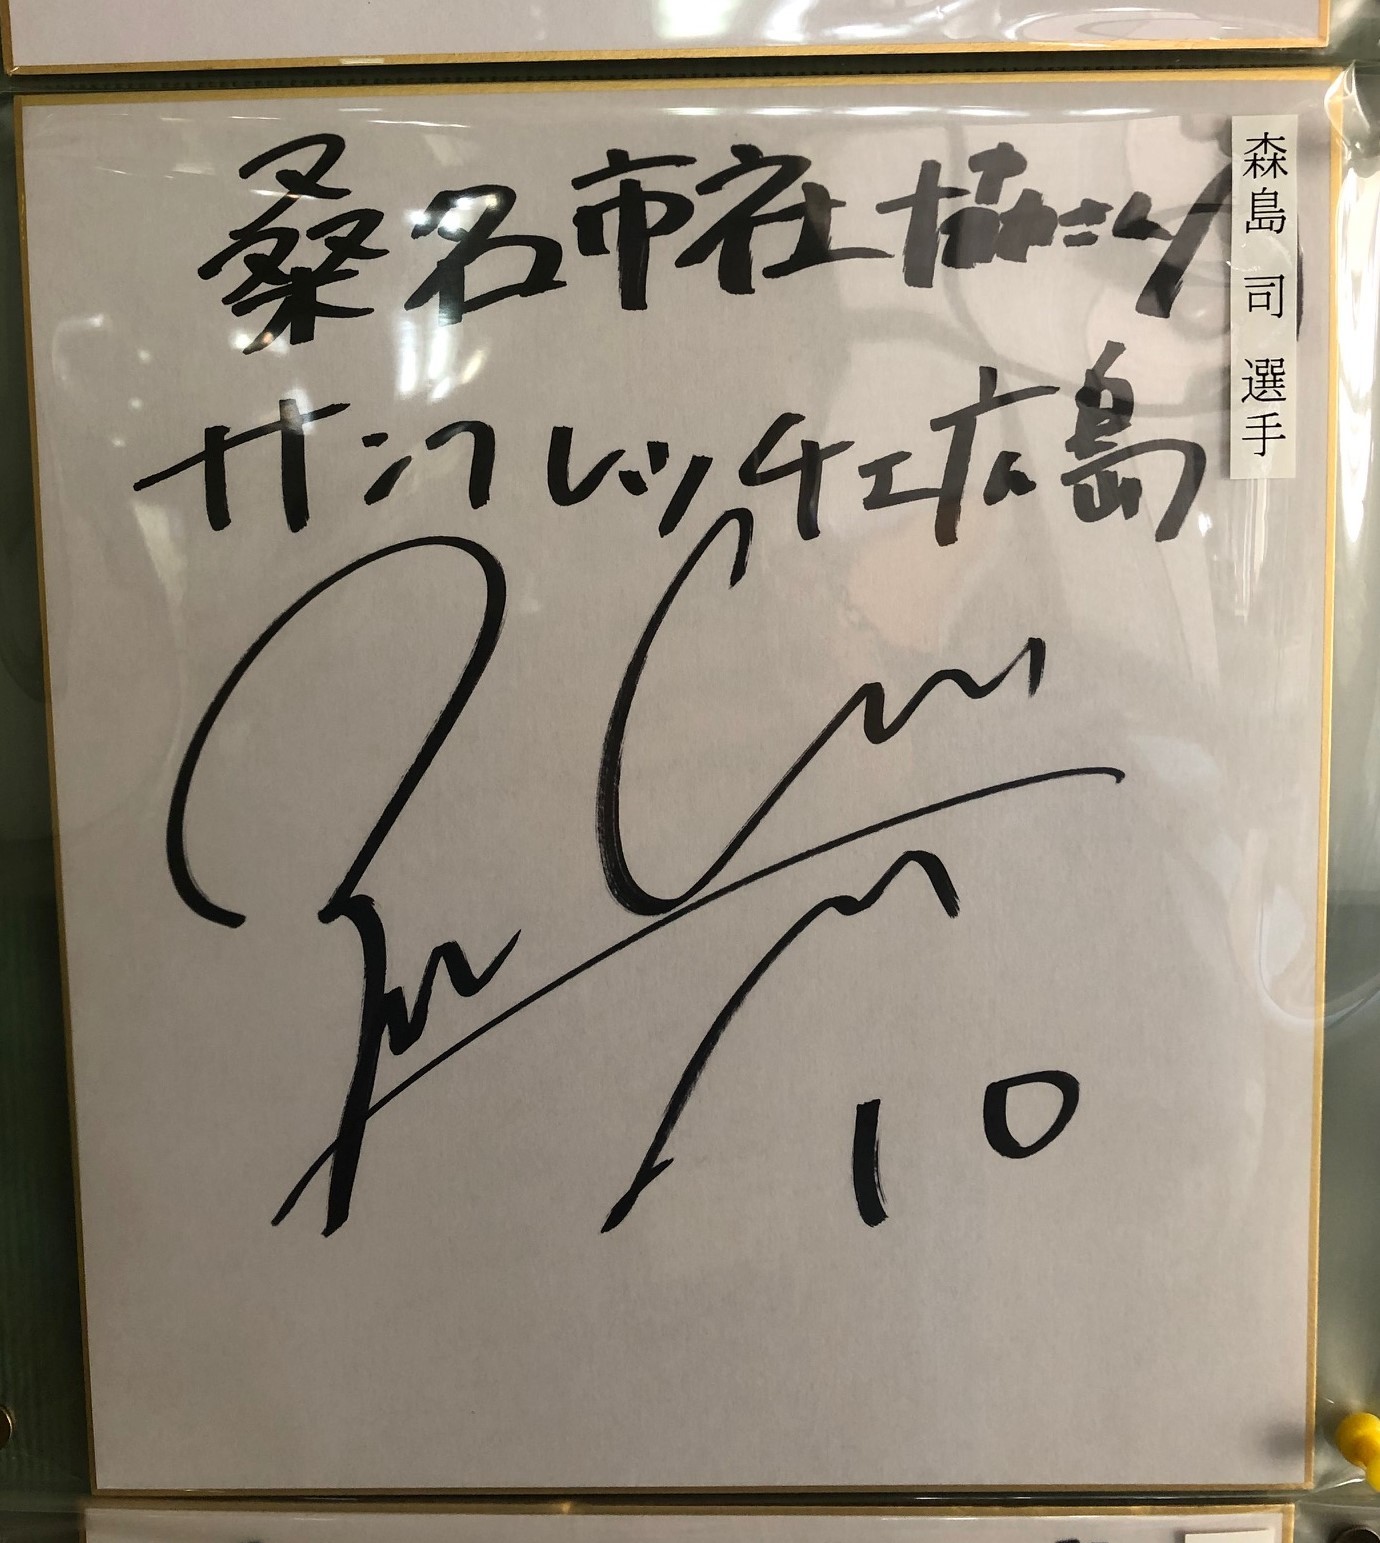 桑名市社協さん江
サンフレッチェ広島
10
森島 司 選手